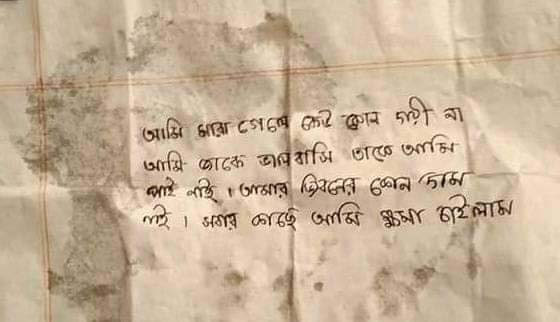 আমি মারা গেলে কেউ কোন দায়ী না
আমি যাকে ভালবাসি তাকে আমি
পাই নাই । আমার জিবনের কোন দাম
নাই । সবার কাছে আমি ক্ষমা চাইলাম